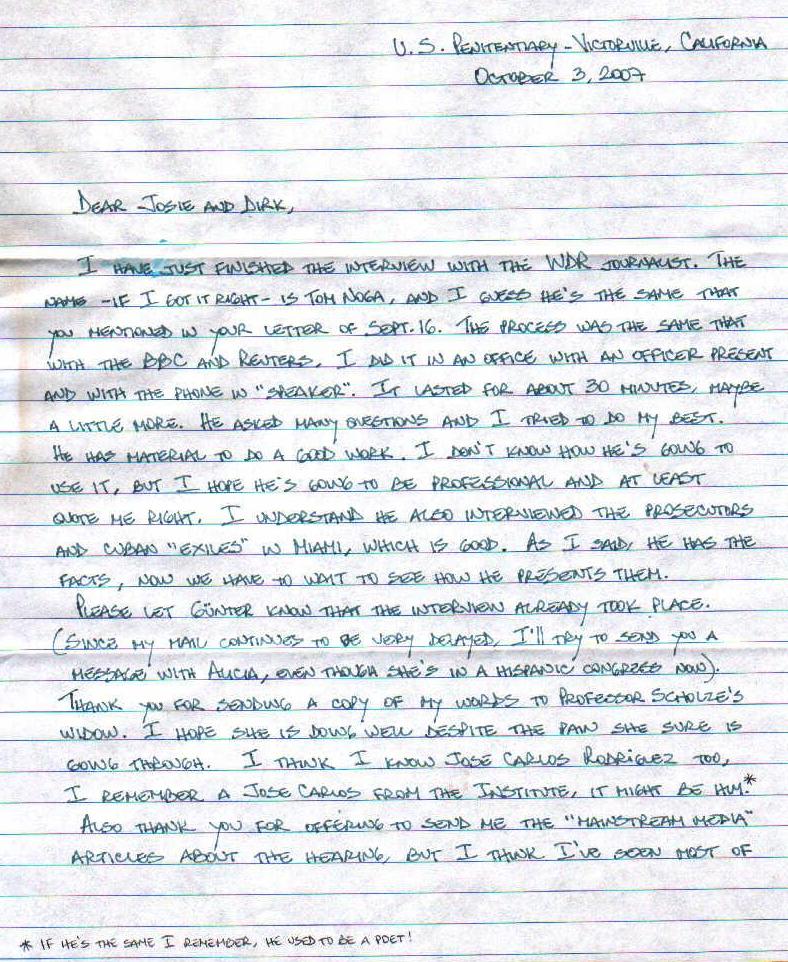 U.S. PENITENTIARY - VICTORVILLE, CALIFORNIA
OCTOBER 3, 2007
DEAR JOSIE AND DIRK,
I HAVE JUST FINISHED THE INTERVIEW WITH THE WDR JOURNALIST. THE
NAME -IF I GOT IT RIGHT- IS TOM NOGA, AND I GUESS HE'S THE SAME THAT
YOU MENTIONED IN YOUR LETTER OF SEPT. 16. THE PROCESS WAS THE SAME THAT
WITH THE BBC AND REUTERS, I DID IT IN AN OFFICE WITH AN OFFICER PRESENT
AND WITH THE PHONE IN "SPEAKER". IT LASTED FOR ABOUT 30 MINUTES, MAYBE
A LITTLE MORE. HE ASKED MANY QUESTIONS AND I TRIED TO DO MY BEST.
HE HAS MATERIAL TO DO A GOOD WORK. I DON'T KNOW HOW HE'S GOING TO
USE IT, BUT I HOPE HE'S GOING TO BE PROFESSIONAL AND AT LEAST
QUOTE ME RIGHT. I UNDERSTAND HE ALSO INTERVIEWED THE PROSECUTORS
AND CUBAN "EXILES" IN MIAMI, WHICH IS GOOD. AS I SAID, HE HAS THE
FACTS, NOW WE HAVE TO WAIT TO SEE HOW HE PRESENTS THEM.
PLEASE LET GÜNTER KNOW THAT THE INTERVIEW ALREADY TOOK PLACE.
(SINCE MY MAIL CONTINUES TO BE VERY DELAYED, I'LL TRY TO SEND YOU A
MESSAGE WITH ALICIA, EVEN THOUGH SHE'S IN A HISPANIC CONGRESS NOW).
THANK YOU FOR SENDING A COPY OF MY WORDS TO PROFESSOR SCHOLZE'S
WIDOW. I HOPE SHE IS DOING WELL DESPITE THE PAIN SHE SURE IS
GOING THROUGH. I THINK I KNOW JOSÉ CARLOS RODRIGUEZ TOO,
I REMEMBER A JOSE CARLOS FROM THE INSTITUTE, IT MIGHT BE HIM.*
ALSO THANK YOU FOR OFFERING TO SEND ME THE "MAINSTREAM MEDIA"
ARTICLES ABOUT THE HEARING, BUT I THINK I'VE SEEN MOST OF
* IF HE'S THE SAME I REMEMBER, HE USED TO BE A POET!